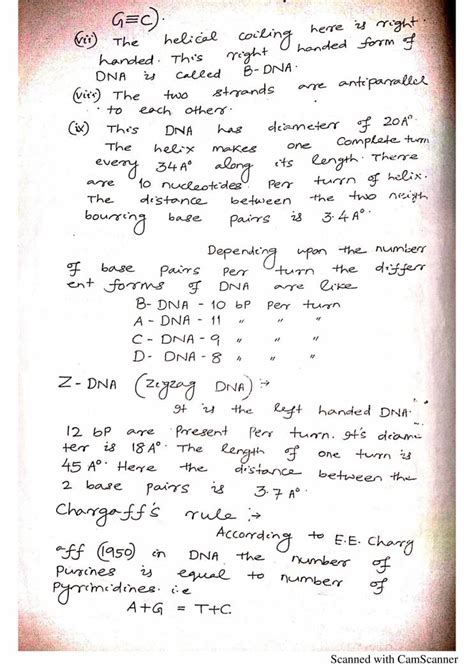 G≡C).
(vii) The helical coiling here is right
handed. This right handed form of
DNA is called B-DNA.
(viii) The two strands are antiparallel
to each other.
(ix) This DNA has diameter of 20A°.
The helix makes one complete turn
every 34A° along its length. There
are 10 nucleotides per turn of helix.
The distance between the two neigh
bouring base pairs is 3.4A°.
Depending upon the number
of base pairs per turn the differ
ent forms of DNA are like
B- DNA - 10 bP Per turn
A - DNA - 11 " " "
C - DNA - 9 " " "
D- DNA - 8 " " "
Z - DNA (Zigzag DNA) :→
It is the left handed DNA.
12 bP are Present Per turn. It's diame
ter is 18A°. The length of one turn is
45 A°. Here the distance between the
2 base pairs is 3.7A°.
Chargaff's rule :→
According to E.E. Charg
aff (1950) in DNA the number of
Purines is equal to number of
Pyrimidines. i.e
A+G = T+C.
Scanned with CamScanner